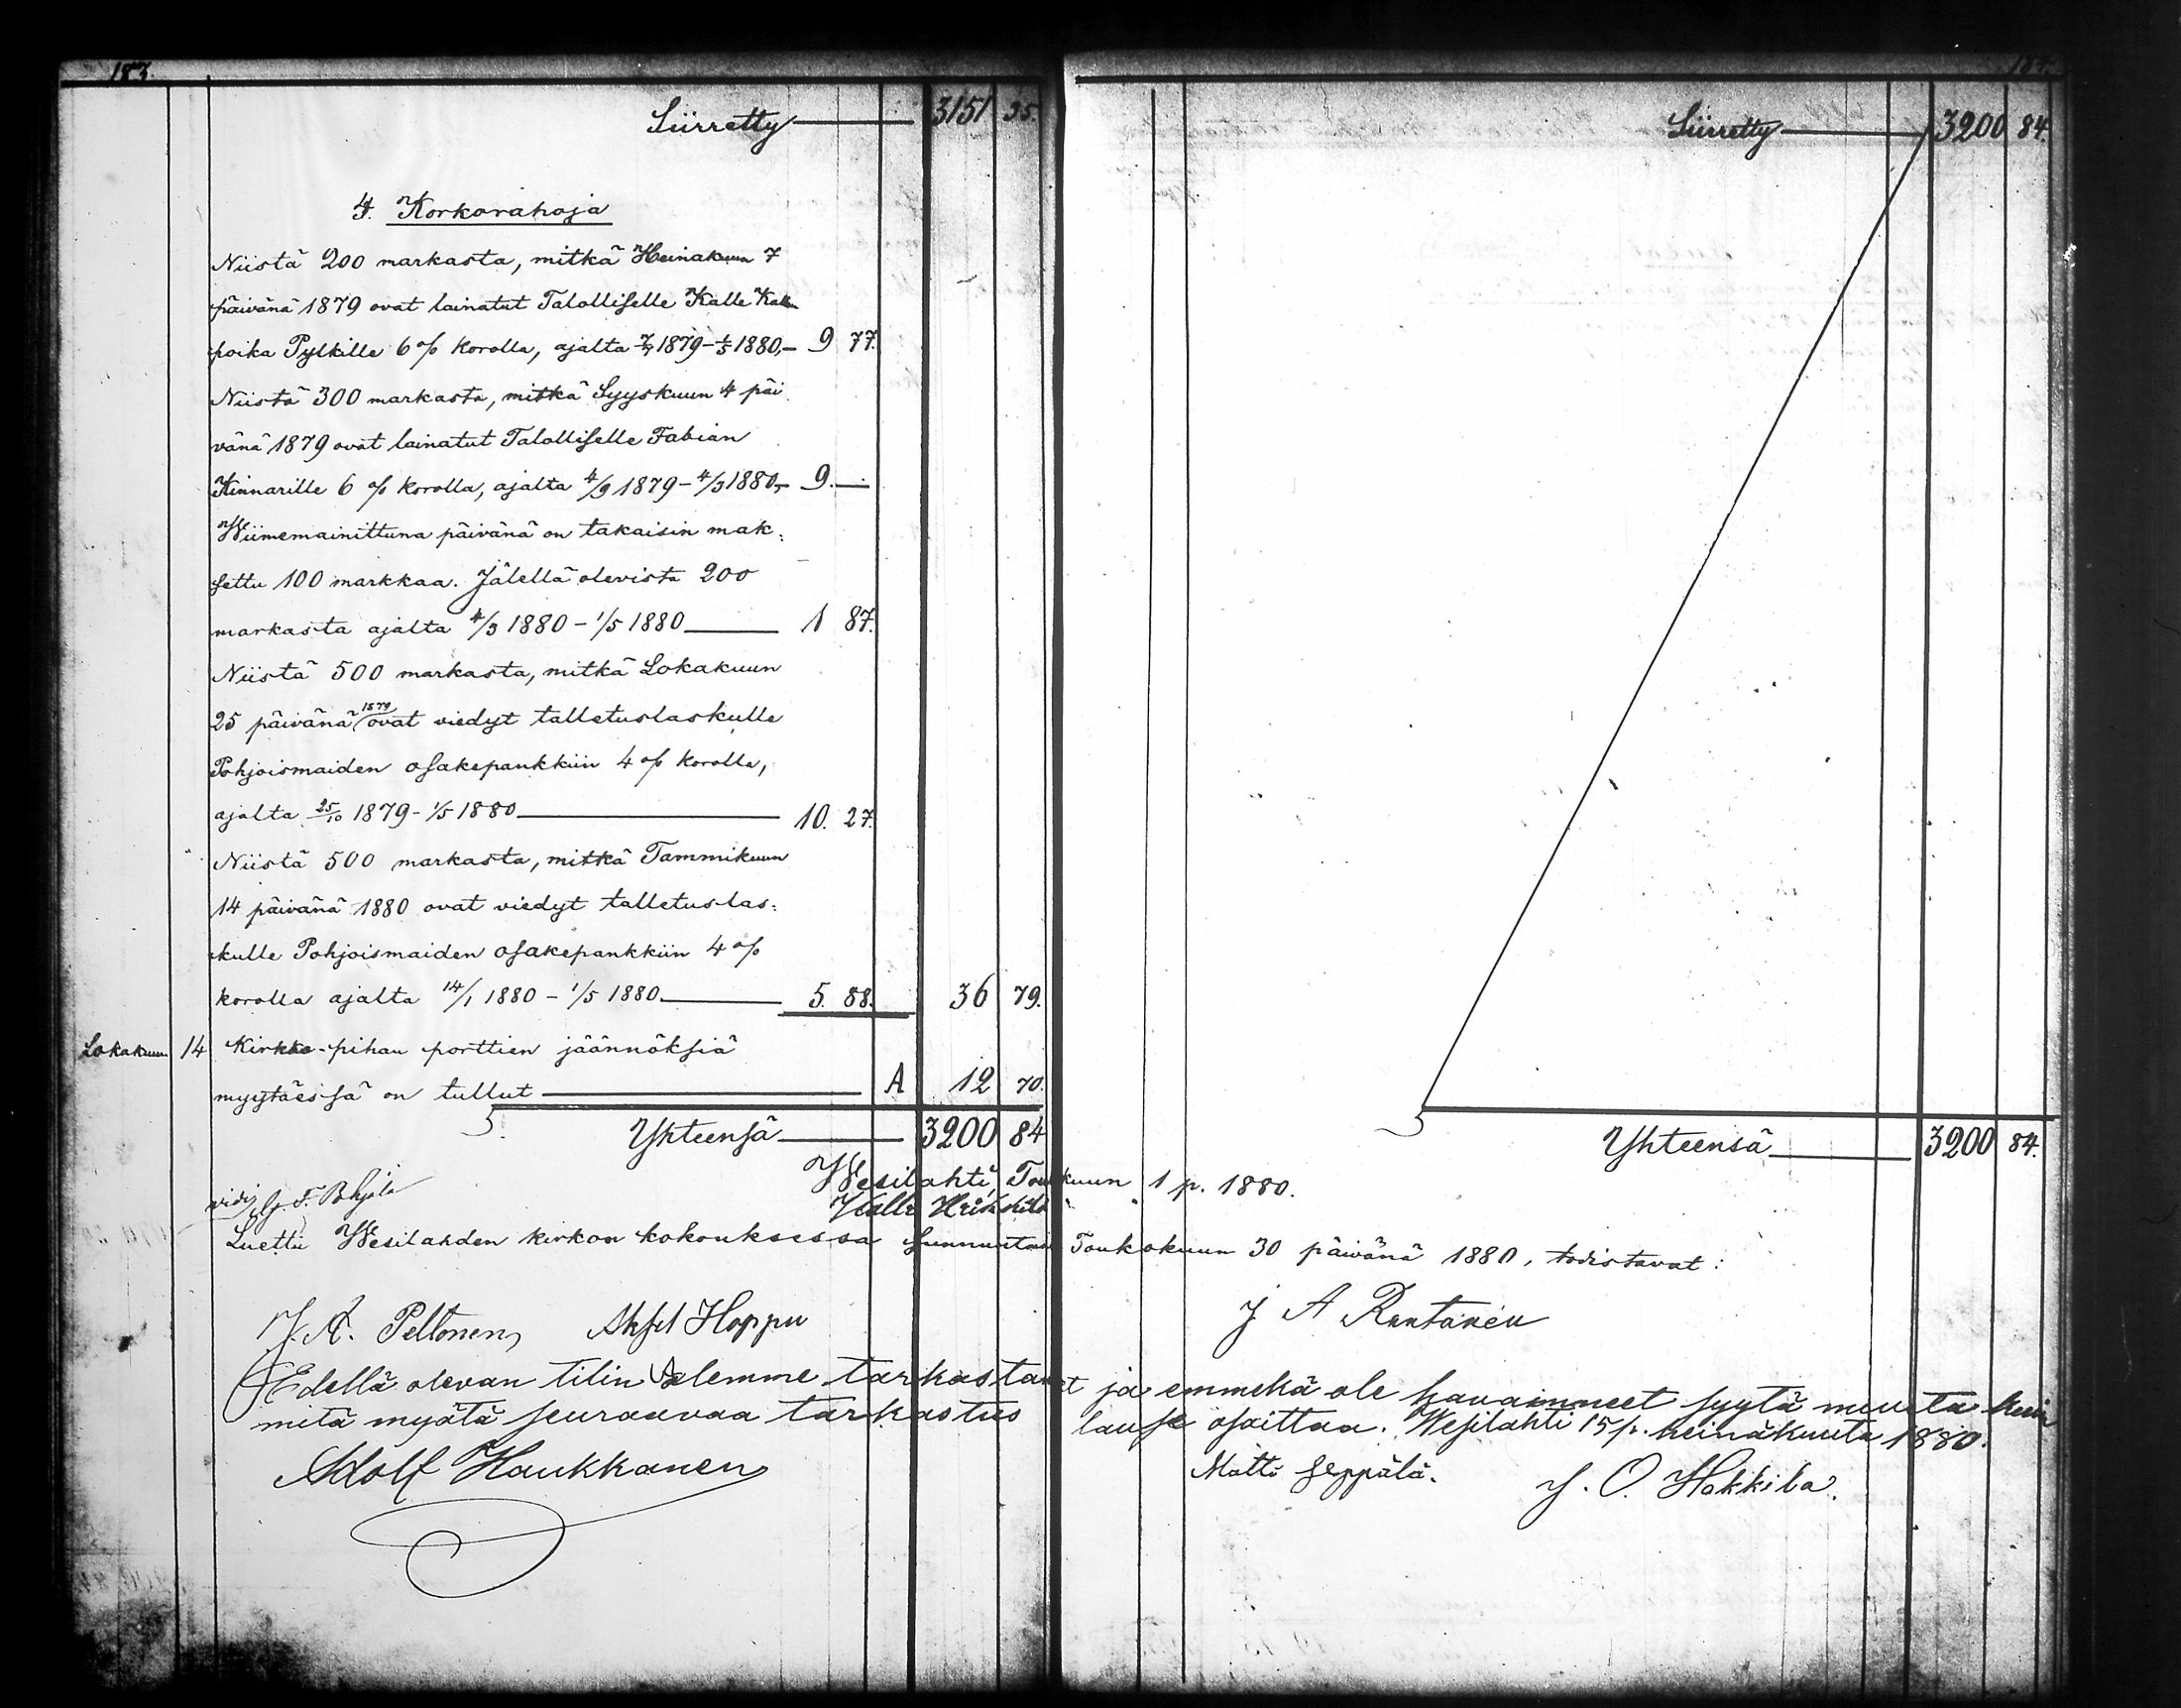 183.
Siirretty 3151 35.
4. Korkorahoja
Niistä 200 markasta, mitkä Heinakuun 7
päivänä 1879 ovat lainatut Talolliselle Kalle Kallen
poika Pylkille 6 % korolla, ajalta 7/7 1879 - 1/5 1880, 9 77.
Niistä 300 markasta, mitkä Syyskuun 4 päi
vänä 1879 ovat lainatut Talolliselle Fabian
Kinnarille 6 % korolla, ajalta 4/9 1879 - 4/3 1880, 9. —
Wiimemainittuna päivänä on takaisin mak:
settu 100 markkaa. Jälellä olevista 200
markasta ajalta 4/3 1880 - 1/5 1880 1 87.
Niistä 500 markasta, mitkä Lokakuun
25 päivänä 1879 ovat viedyt talletuslaskulle
Pohjoismaiden osakepankkiin 4 % korolla,
ajalta 25/10 1879 - 1/5 1880 10. 27.
Niistä 500 markasta, mitkä Tammikuun
14 päivänä 1880 ovat viedyt talletuslas:
kulle Pohjoismaiden osakepankkiin 4 %
korolla ajalta 14/1 1880 - 1/5 1880 5. 88. 36 79.
Lokakuun 14 Kirkko-pihan porttien jäännöksiä
myytäissä on tullut A 12 70.
Yhteensä 3200 84
Siirretty 3200 84.
Yhteensä 3200 84.
Wesilahti, Toukokuun 1 p. 1880.
vidi G. F. Bohjola Kalle Heikkilä
Luettu Wesilahden kirkon kokouksessa sunnuntaina Toukokuun 30 päivänä 1880, todistavat:
J. A. Peltonen, Aksel Hoppu J A Rantanen
Edellä olevan tilin olemme tarkastaneet ja emmekä ole havainneet syytä muuta kuin
mitä myötä seuraavaa tarkastus lause osoittaa. Wesilahti 15 p. heinäkuuta 1880.
Adolf Haukkanen Matti Seppälä. J. O. Hakkila.